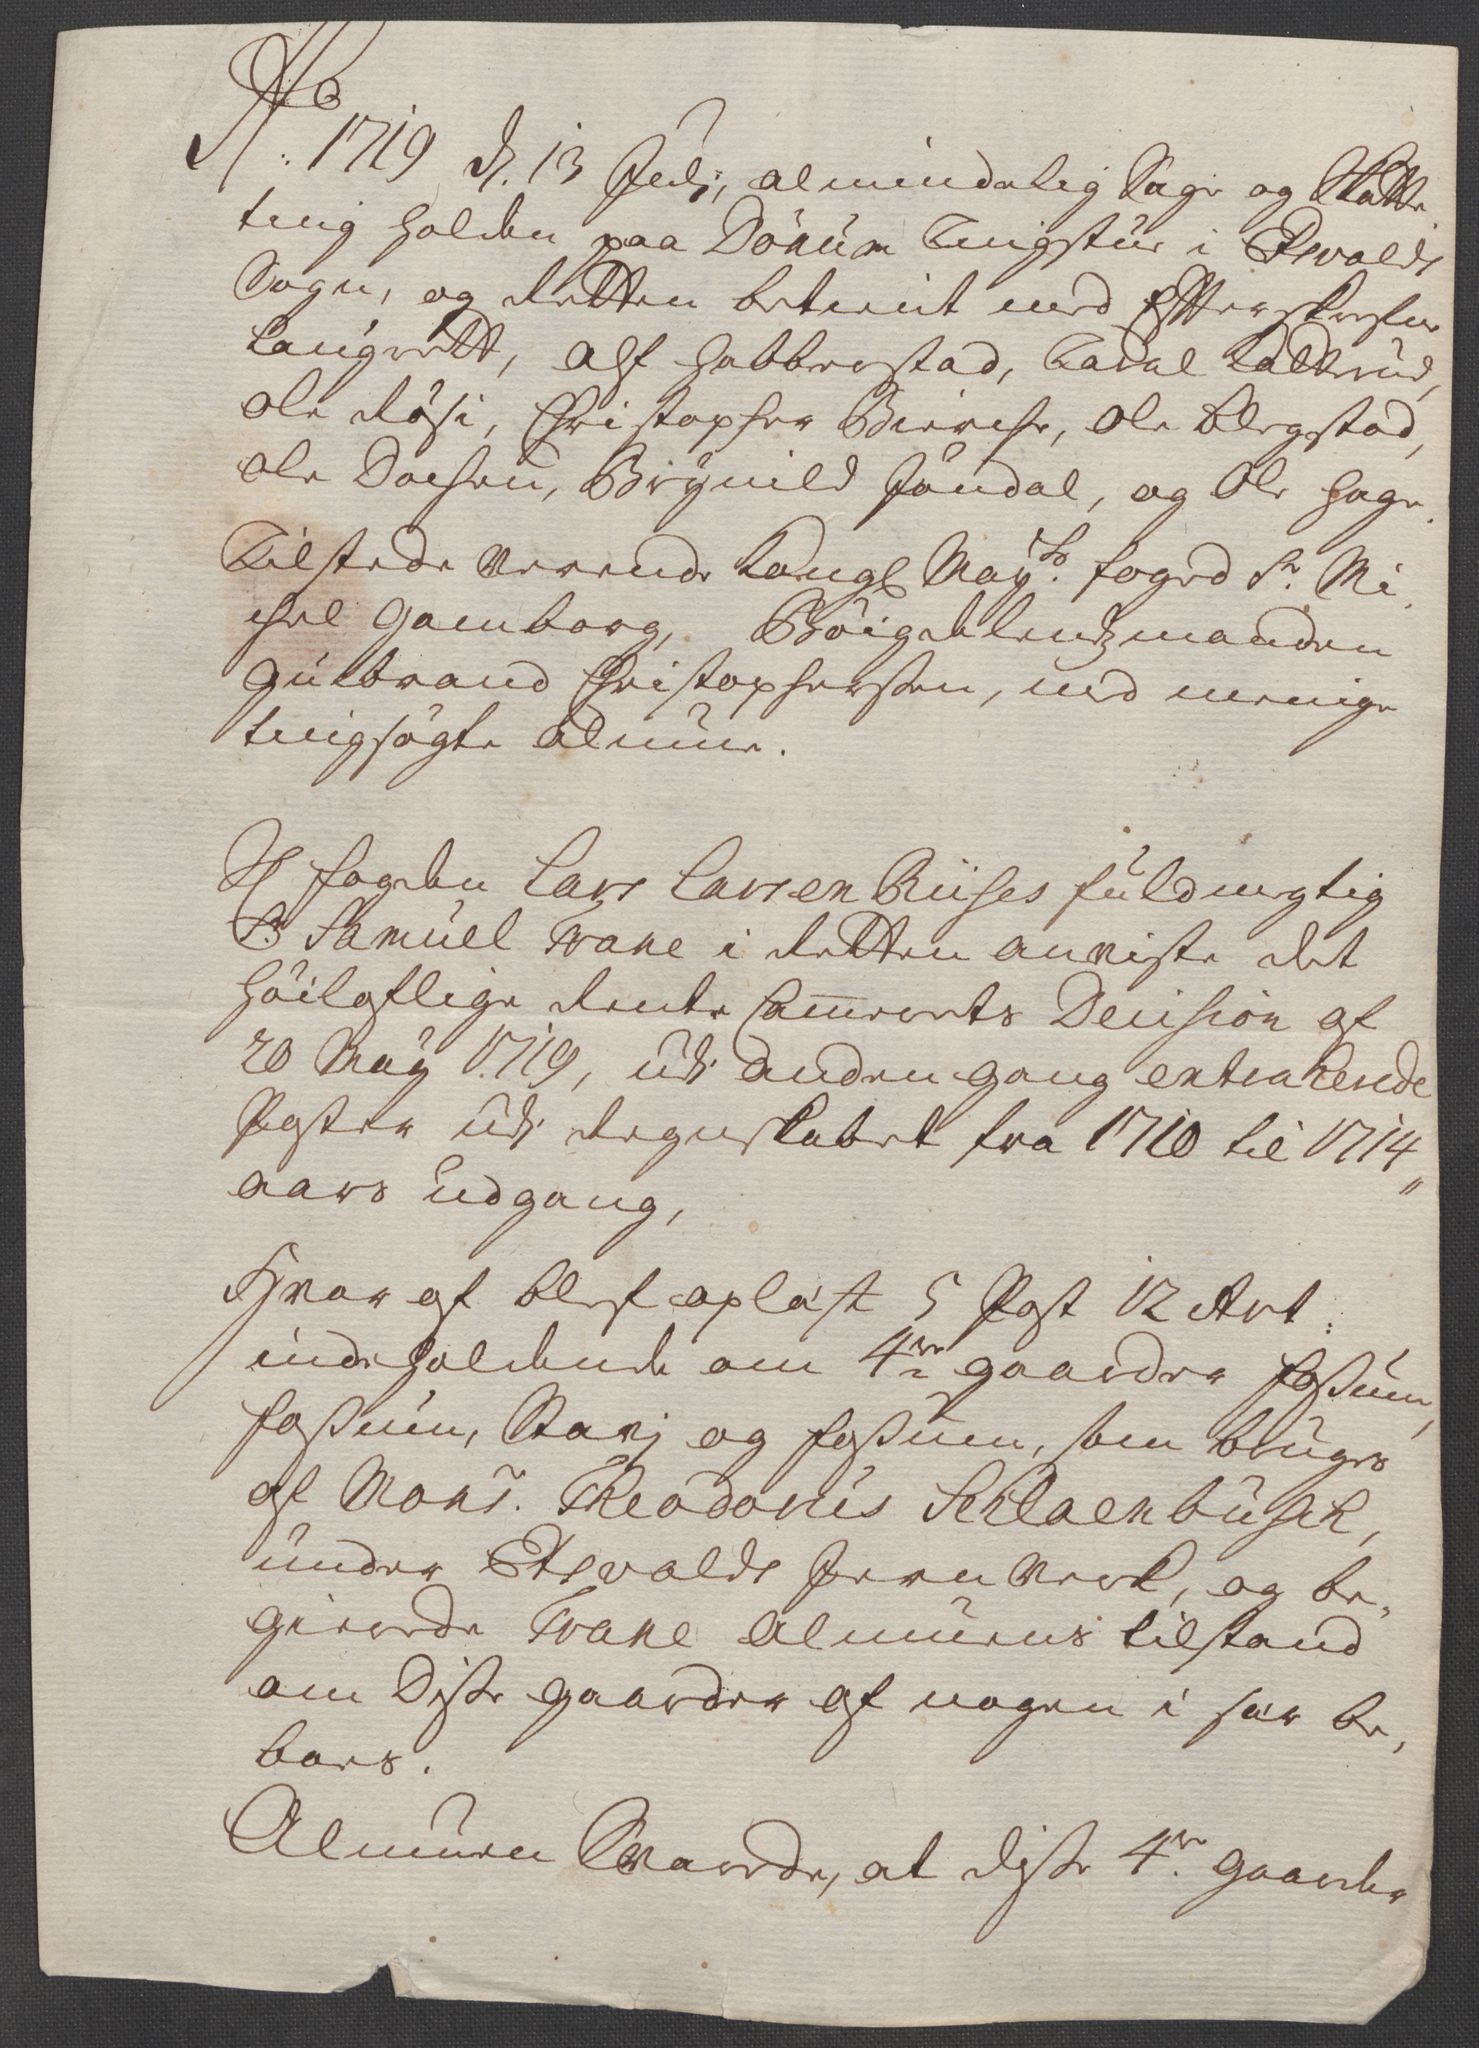 Ao. 1719 d. 13 Julj, almindelig Sage og Skatte
ting holden paa Dönüm Tingstue i Edsvolds
Sogn, og Retten betient med Efterskrefne
Laugrett, Alf Habberstad, Tadal
Ole Röhsi, Christopher Bierche, Ole Blegstad,
Ole Dochen, Brÿnild Jöndal, og Ole Hage.
Tilstede verende Kongl Maÿts. foged Sr. Mi,
chel Gamborg, Böigdelendsmanden
Gulbrand Christophersen, med menige
tingsögte Almue.
Hr fogden Lars Larsen Riises fuldmegtig
Sr Samuel Trane i Retten anviste det
höiloflige Rente Camerets Decision af
20 Maÿ 1719, udi anden gang extraherede
Poster udi Regnskabet fra 1710 til 1714
aars Udgang,
Hvor af blef oplæst 5 Post 12 Art:
indeholdende om 4re gaarder Fossum,
Fossum, Starj og Fossum, som bruges
af Monsr. Theodorus Schlaenbusch,
under Edsvolds Jernverk, og be,
gierede Trane Almuens tilstand
om Disse gaarder af nogen i sær be,
boes.
Almuen Svarede, at disse 4re gaarder